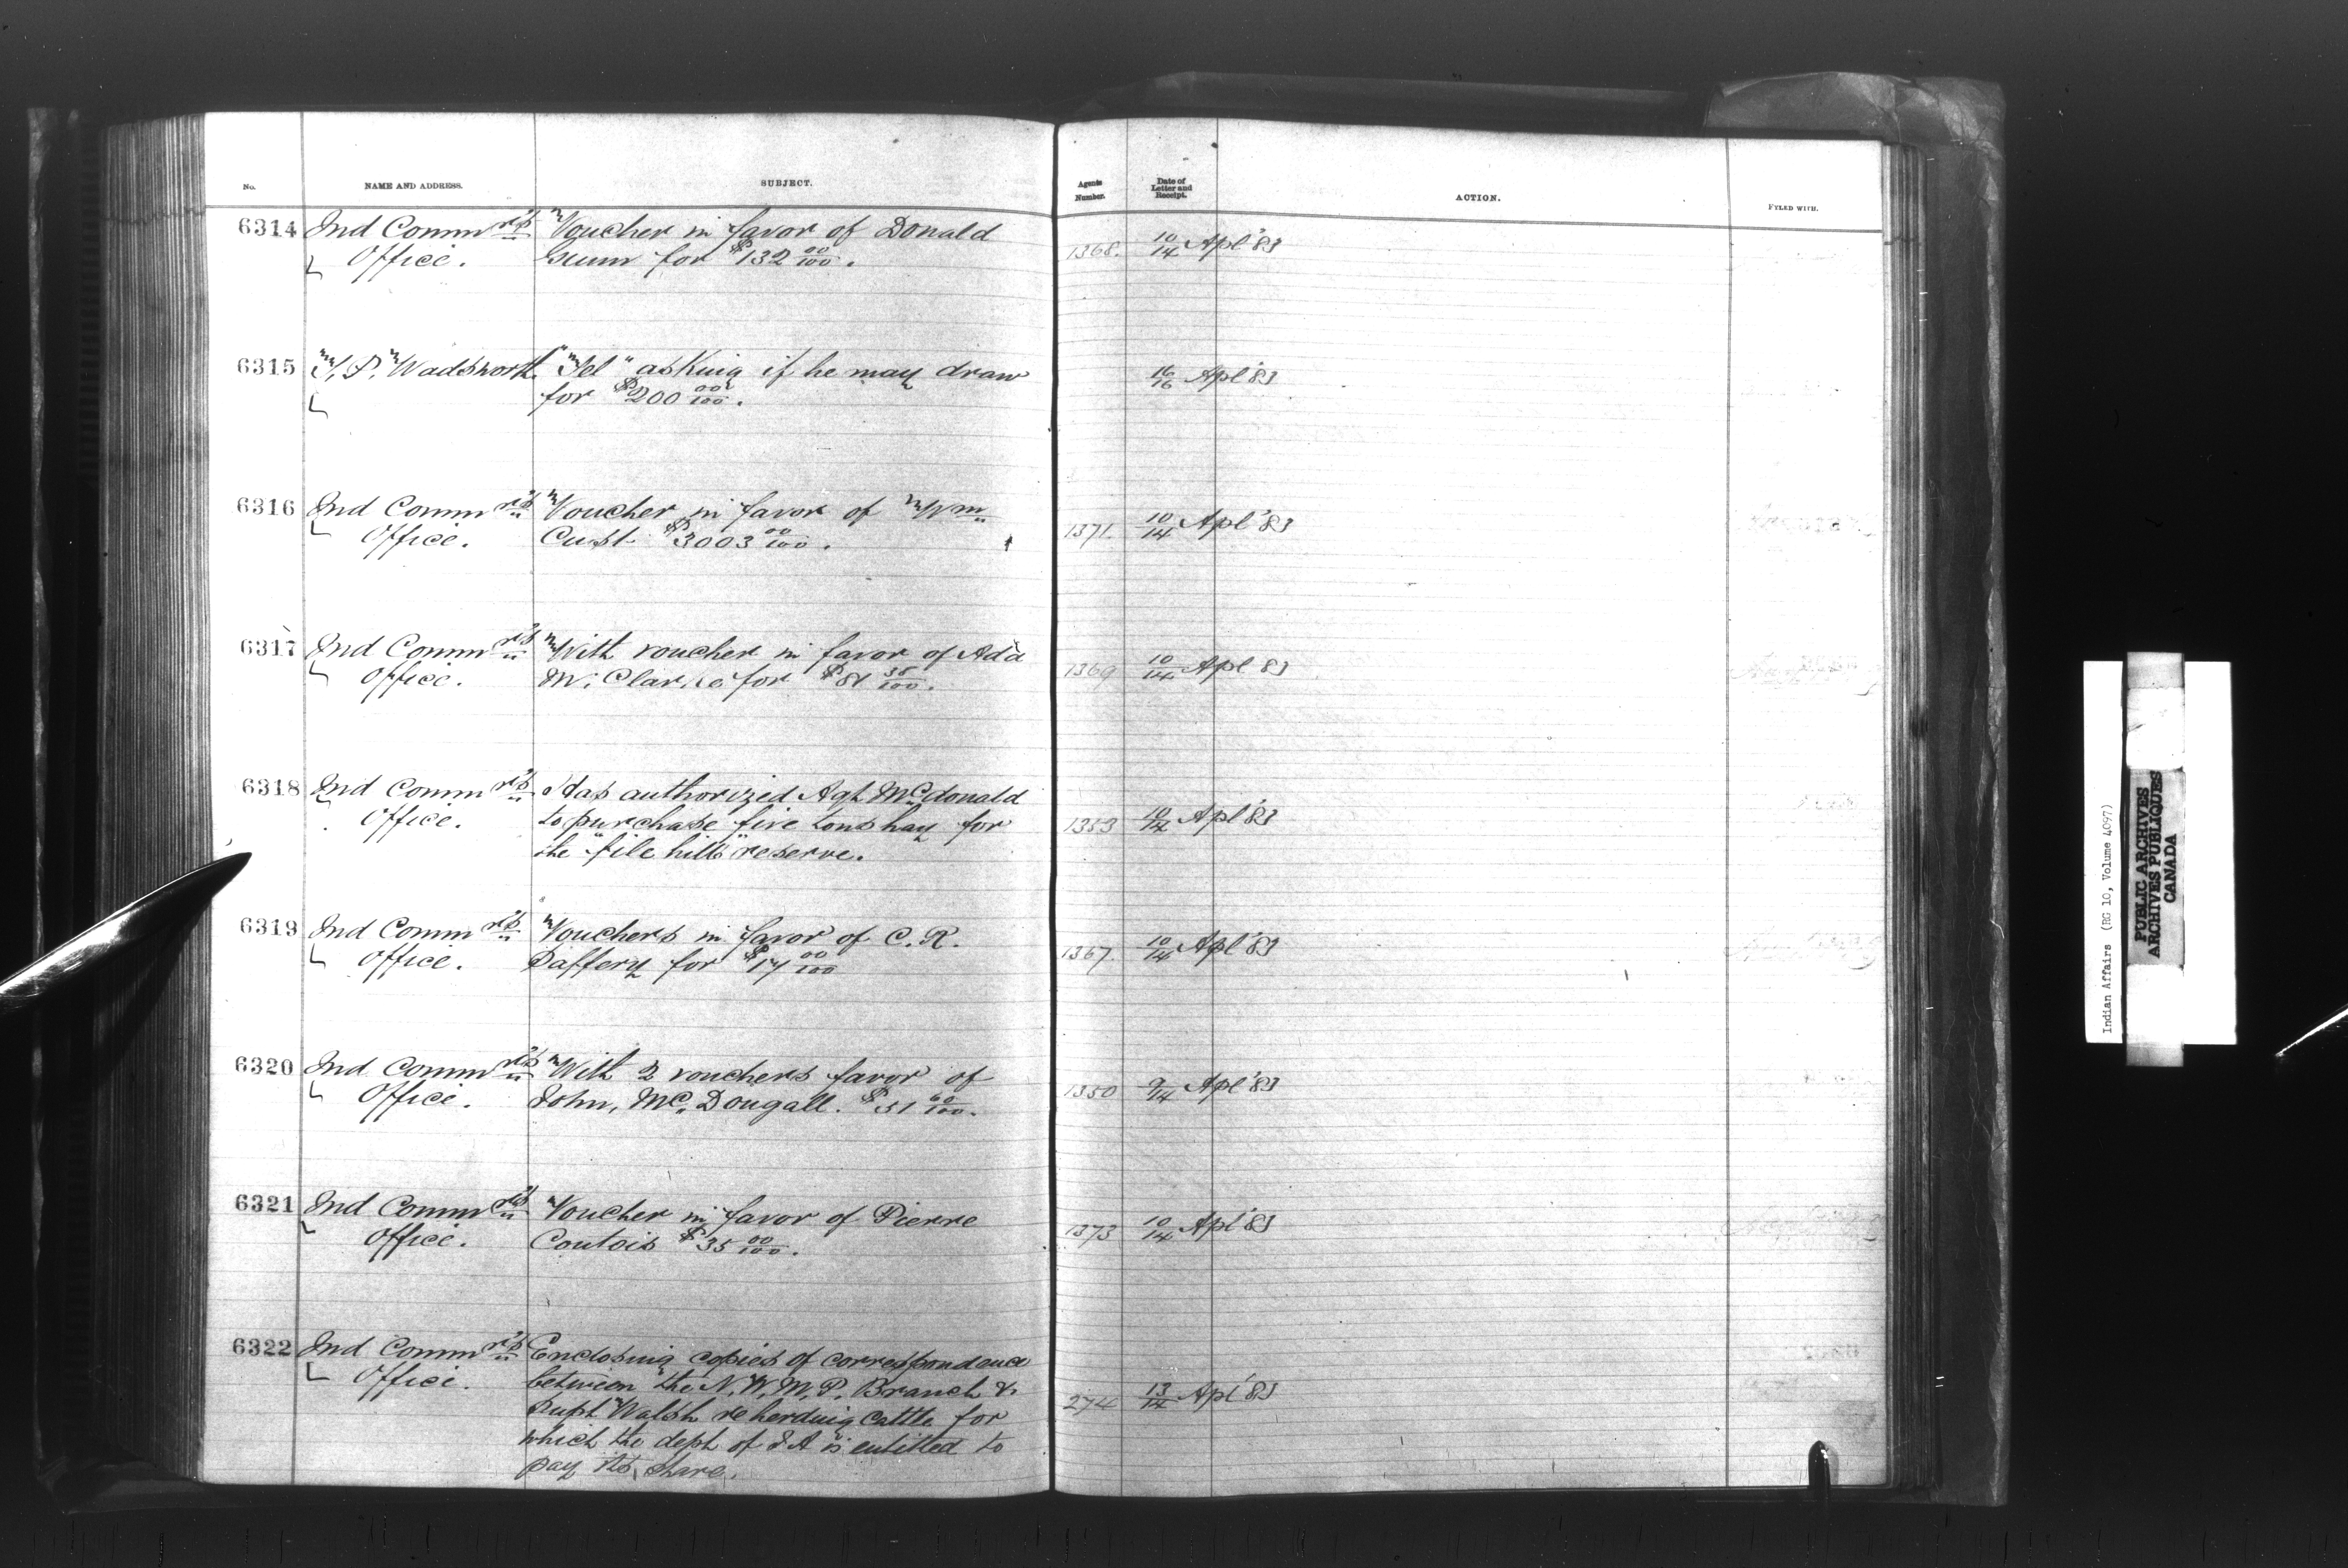 No. NAME AND ADDRESS. SUBJECT. Agents Number. Date of Letter and Receipt. ACTION. FYLED WITH.
6314 Ind Commrs Voucher in favor of Donald
Office. Gunn for $132 00/100. 1368. 10/14 Apl '83
6315 T. P. Wadsworth "Tel" asking if he may draw
for $200 00/100. 16/16 Apl '83
6316 Ind Commrs Voucher in favor of Wm
Office. Cust $3003 00/100. 1371. 10/14 Apl '83
6317 Ind Commrs With voucher in favor of Ada
Office. M. Clarke for $81 35/100. 1369 10/14 Apl 83
6318 Ind Commrs Has authorized Agt McDonald
Office. to purchase five tons hay for 1353 10/14 Apl '83
the "file hills" reserve.
6319 Ind Commrs Vouchers in favor of C. R.
Office. Daffery for $17 00/100 1367. 10/14 Apl '83
6320 Ind Commrs With 2 vouchers favor of
Office. John, Mc. Dougall. $51 60/100. 1350 9/14 Apl '83
6321 Ind Commrs Voucher in favor of Pierre
Office. Coutois $35 00/100. 1373 10/14 Apl '83
6322 Ind Commrs Enclosing copies of correspondence
Office. between the N. W. M. P. Branch &
Supt Walsh re herding cattle for 274 13/14 Apl '83
which the dept of I A is entitled to
pay its share.
Indian Affairs (RG 10, Volume 4097)
PUBLIC ARCHIVES
ARCHIVES PUBLIQUES
CANADA